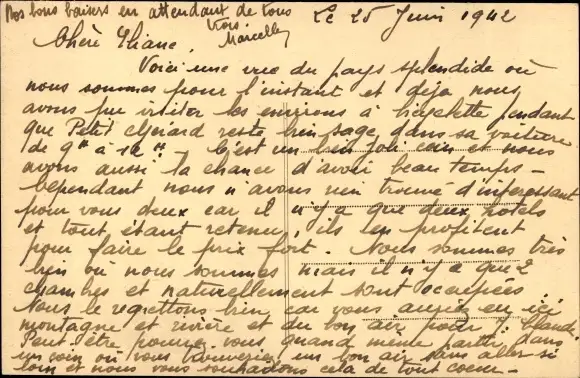 Nos bons baisers en attendant de vous
voir.
Marcelle
Le 25 Juin 1942
Chère Eliane,
Voici une vue du pays splendide où
nous sommes pour l'instant et déjà nous
avons pu visiter les environs à bicyclette pendant
que Petit Gérard reste bien sage dans sa voiture
de 9h à 12h. C'est un bien joli coin et nous
avons aussi la chance d'avoir beau temps -
Cependant nous n'avons rien trouvé d'intéressant
pour vous deux car il n'y a que deux hotels
et tout étant retenu, ils en profitent
pour faire le prix fort. Nous sommes très
bien où nous sommes mais il n'y a que 2
chambres et naturellement sont occupées.
Nous le regrettons bien car vous auriez eu ici
montagne et rivière et du bon air pour
Peut être pourrez vous quand même partir dans
un coin où vous trouveriez un bon air sans aller si
loin et nous vous souhaitons cela de tout coeur -